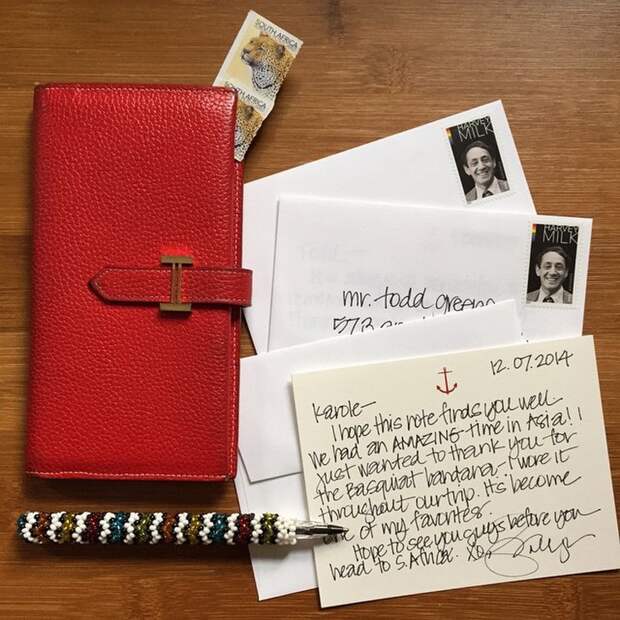 SOUTH AFRICA
SOUTH AFRICA
HARVEY
MILK
HARVEY
MILK
mr. todd greene
12.07.2014
Karole—
I hope this note finds you well.
We had an AMAZING time in Asia! I
just wanted to thank you for
the Basquiat bandana—I wore it
throughout our trip. Its' become
one of my favorites.
Hope to see you guys before you
head to S.Africa. XO,